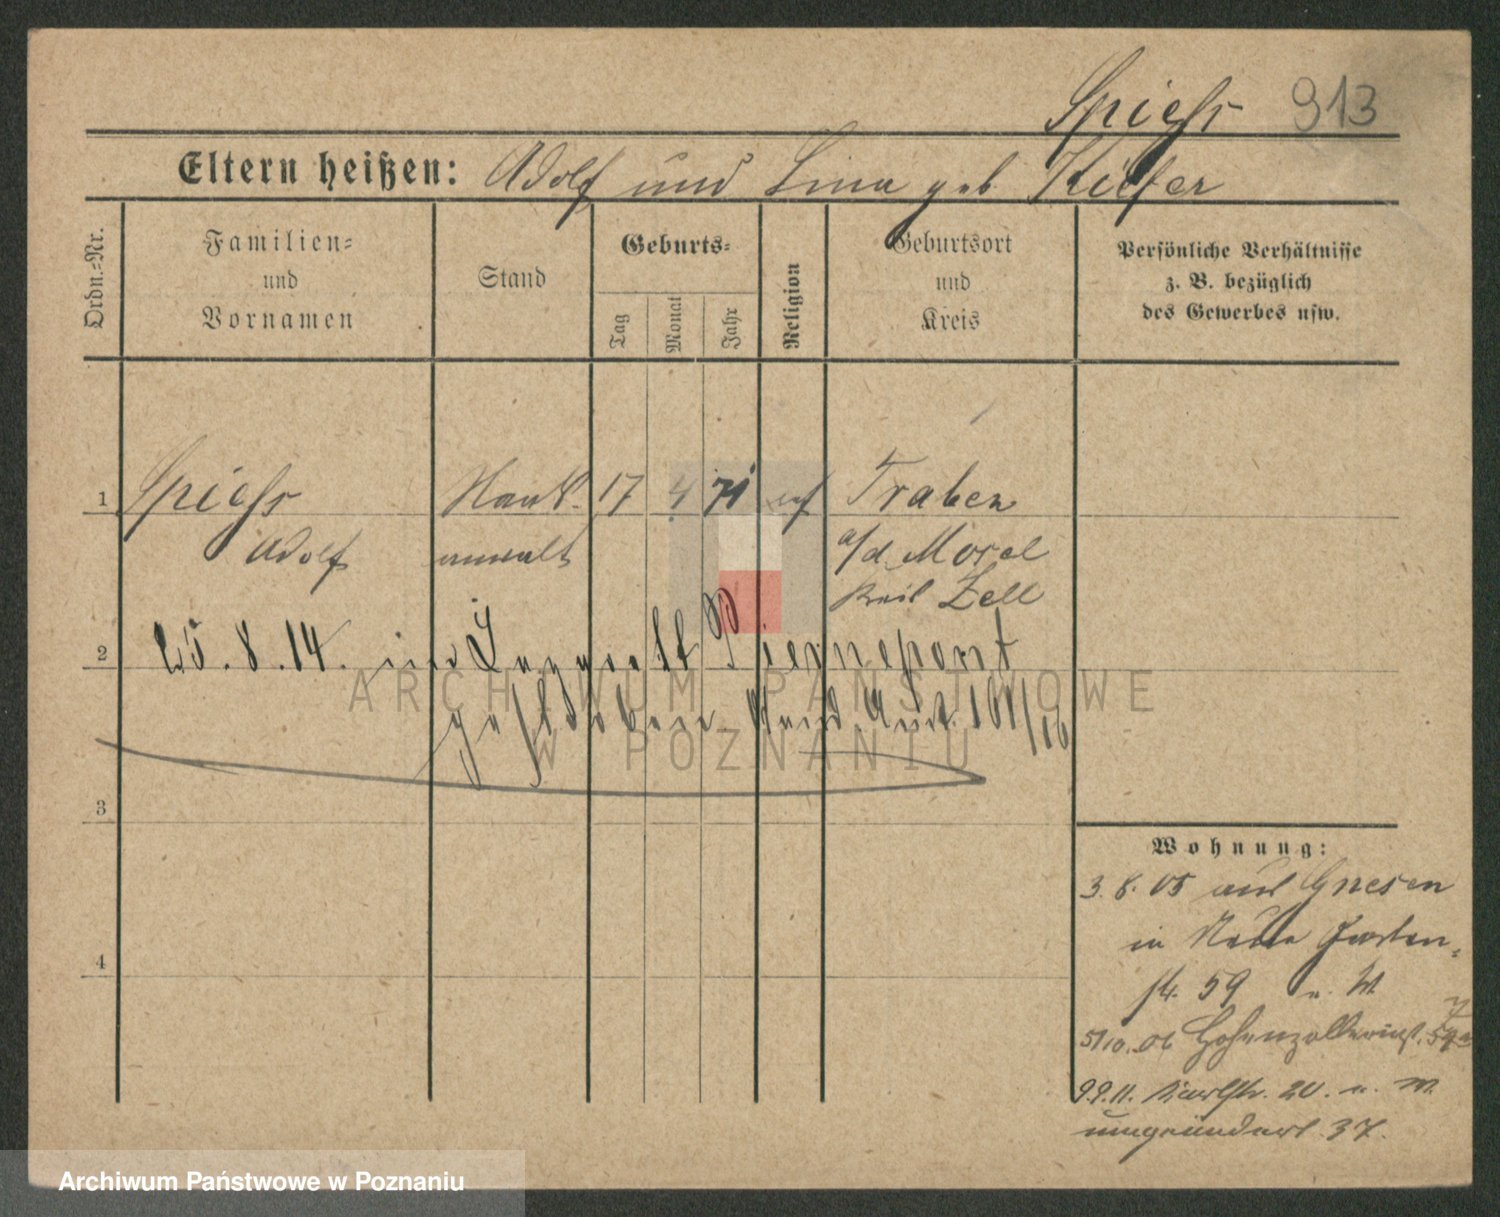 Spiess 913
Eltern heißen: Adolf und Lina geb Keller
Ordn.-Nr.
Familien-
und
Vornamen
Stand
Geburts-
Tag
Monat
Jahr
Religion
Geburtsort
und
Kreis
Persönliche Verhältnisse
z. B. bezüglich
des Gewerbes usw.
1 Spiess 17 4 71 ev Traben
Adolf anwalt a/d. Mosel
Kreis Zell
2 25. 8. 14. im Lazarett Pierrepont
gestorben
3
4
Wohnung:
3. 8. 05 aus Gnesen
in Neue Garten-
str. 59 n. W
5/10. 06 Hohenzollernst.
9.9.11. Karlstr. 20. n. W.
umgeändert 37.
ARCHIWUM PAŃSTWOWE
W POZNANIU
Archiwum Państwowe w Poznaniu